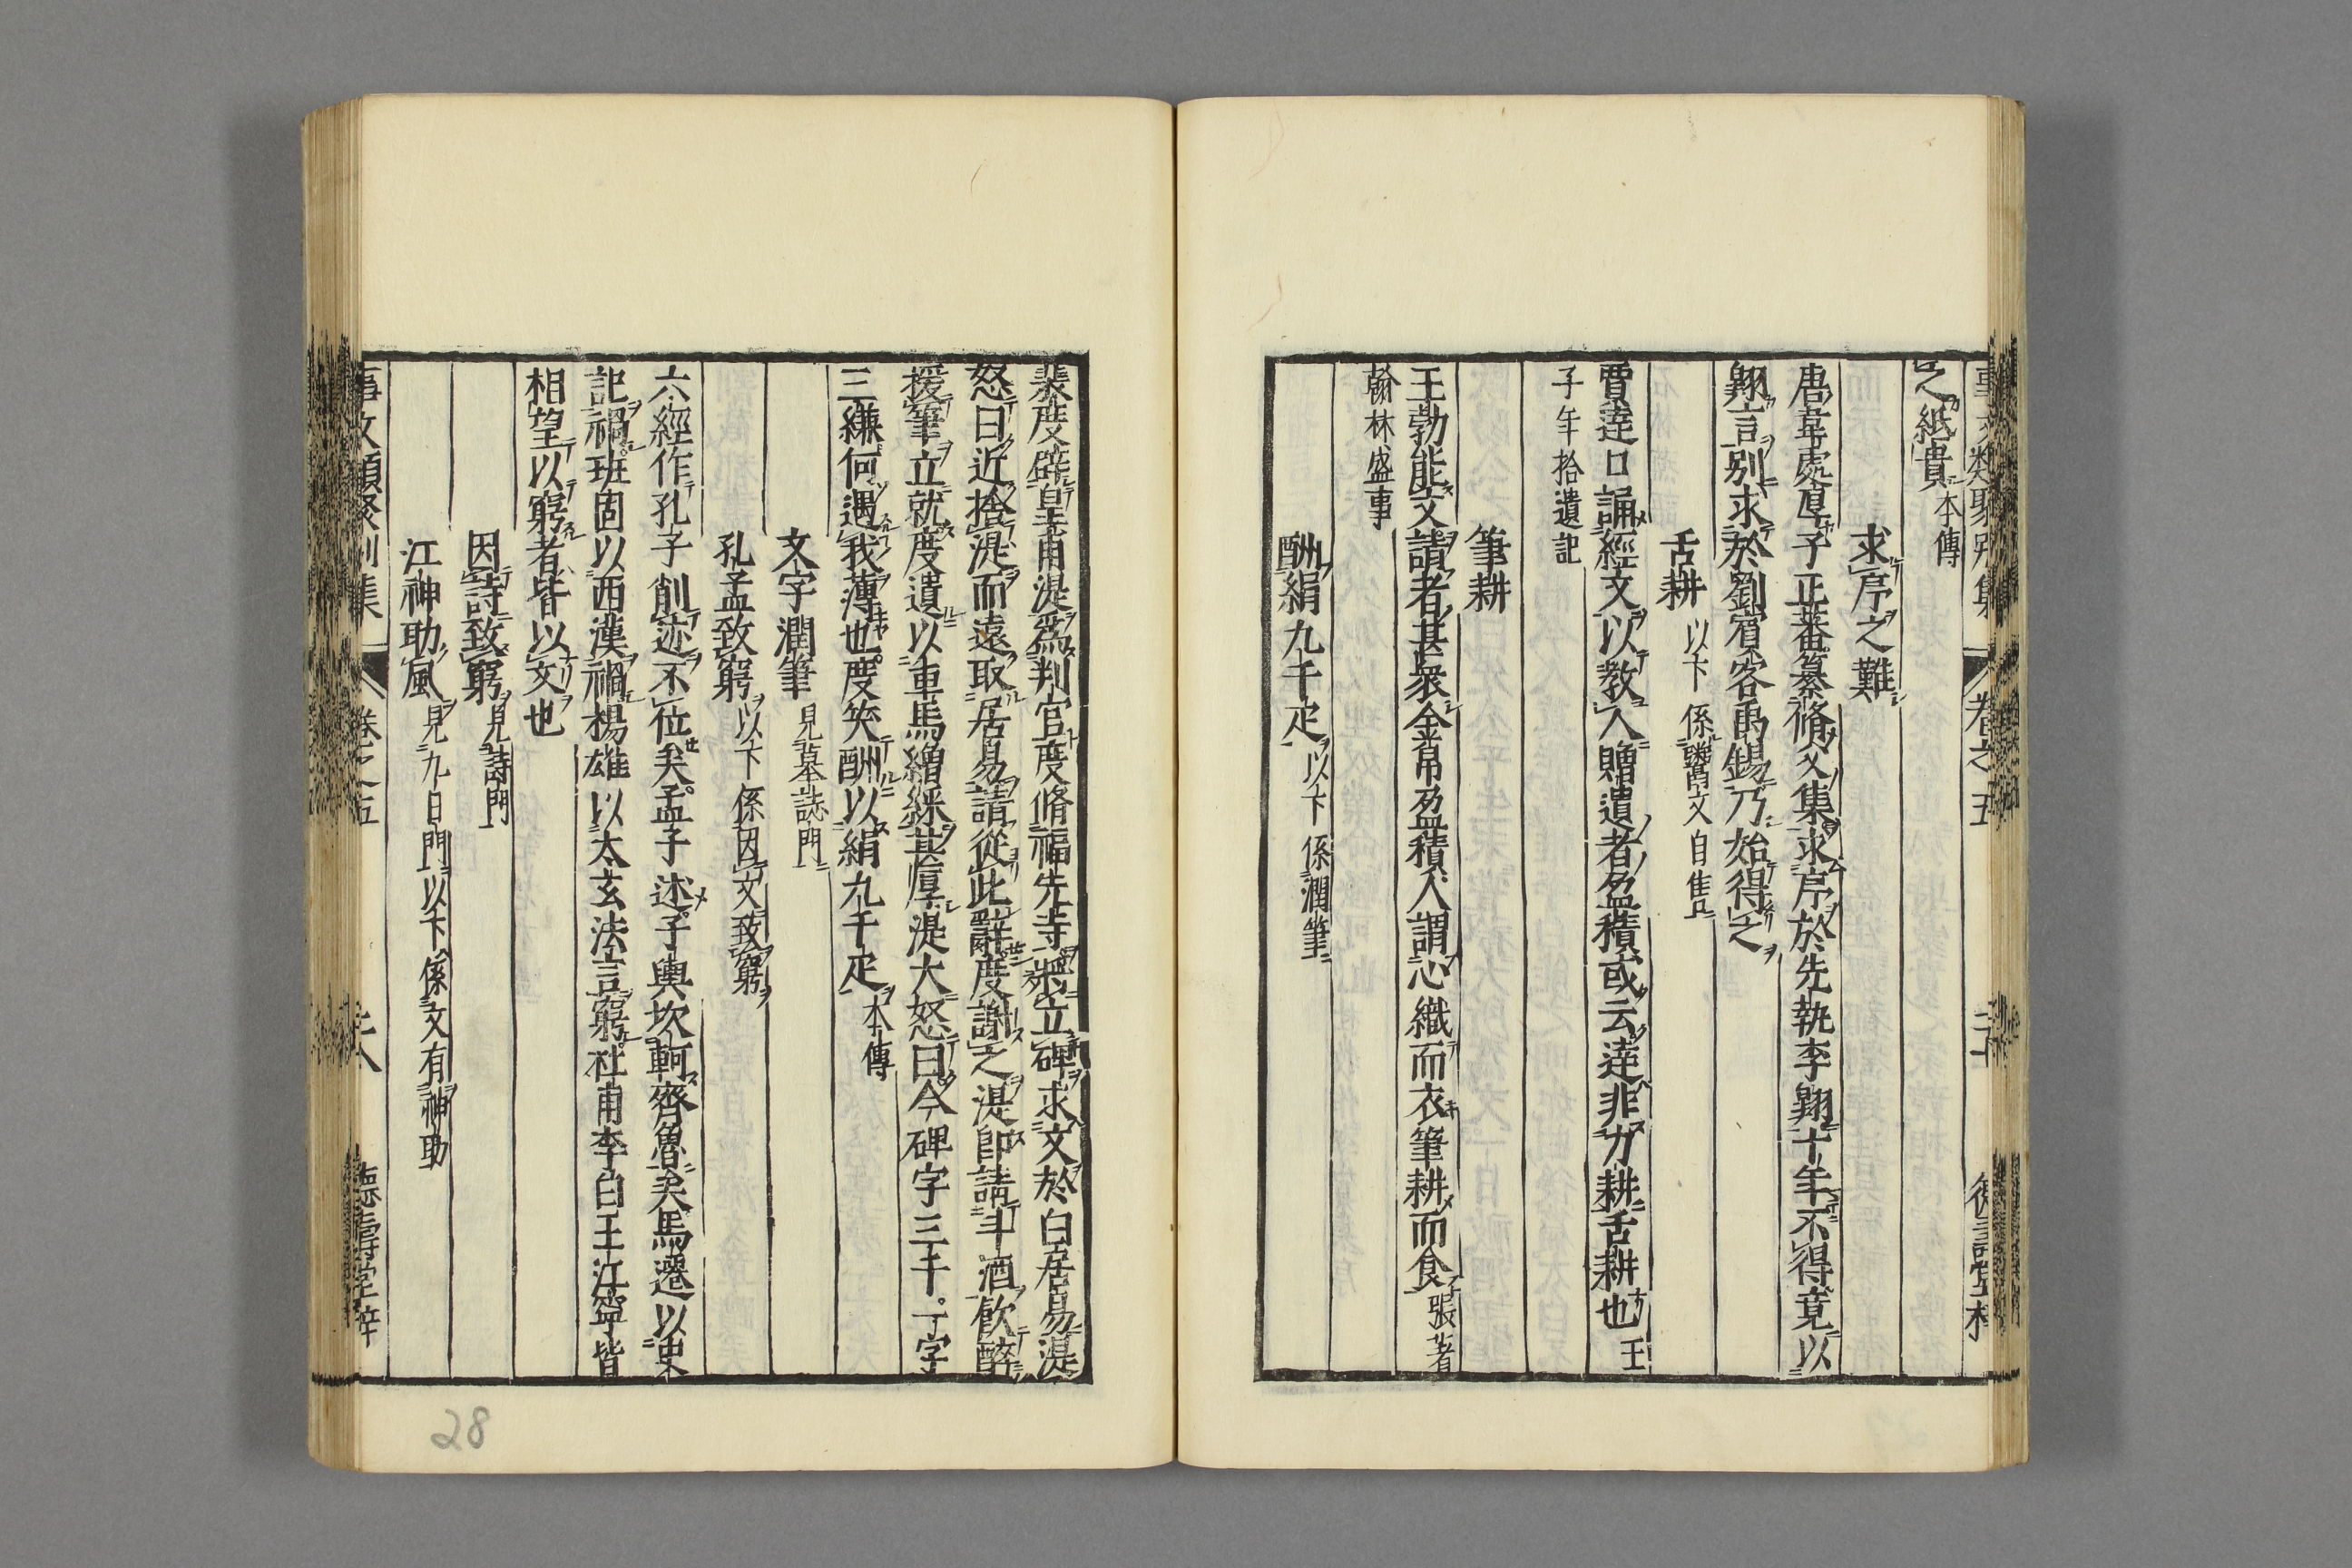 之紙貴本傳
求序之難
唐韋處厚子正蕃纂脩父集求序於先執李翺十年不得竟以
翺言別求於劉賓客禹錫乃始得之
舌耕以下係鬻文自售
賈逵口誦經文以教人贈遺者盈積或云逵非力耕舌耕也王
子年拾遺記
筆耕
王勃能文請者甚衆金帛盈積人謂心織而衣筆耕而食張著
翰林盛事
酬絹九千疋以下係潤筆
裴度辟皇甫湜爲判官度脩福先寺將立碑求文於白居易湜
怒曰近捨湜而遠取居易請從此辭度謝之湜卽請斗酒飮醉
援筆立就度遺以車馬繒綵甚厚湜大怒曰今碑字三千一字
三縑何遇我薄也度笑酬以絹九千疋本傳
文字潤筆見墓誌門
孔孟致窮以下係因文致窮
六經作孔子削迹不位矣孟子述子輿坎軻齊魯矣馬遷以史
記禍班固以西漢禍楊雄以太玄法言窮杜甫李白王江寧皆
相望以窮者皆以文也
因詩致窮見詩門
江神助風見九日門以下係文有神助
事文類聚別集
卷之五
28